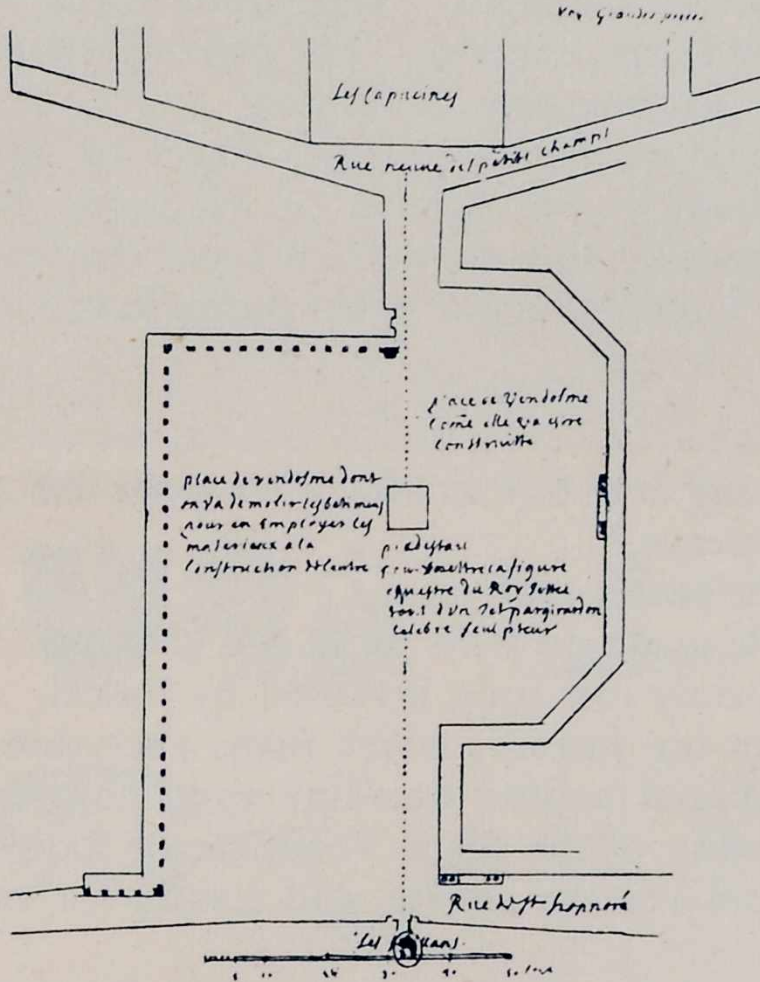 Les Capucines
Rue neuue des petits champs
place de Vendosme
come elle va estre
construitte
place de vendosme dont
on va demolir les batimens
pour en Employer les
materiaux a la
construction de lautre
piedestail
pour mettre la figure
equestre du Roy Jettee
tout d'un Jet par girardon
celebre sculpteur
Rue de St honnoré
Les